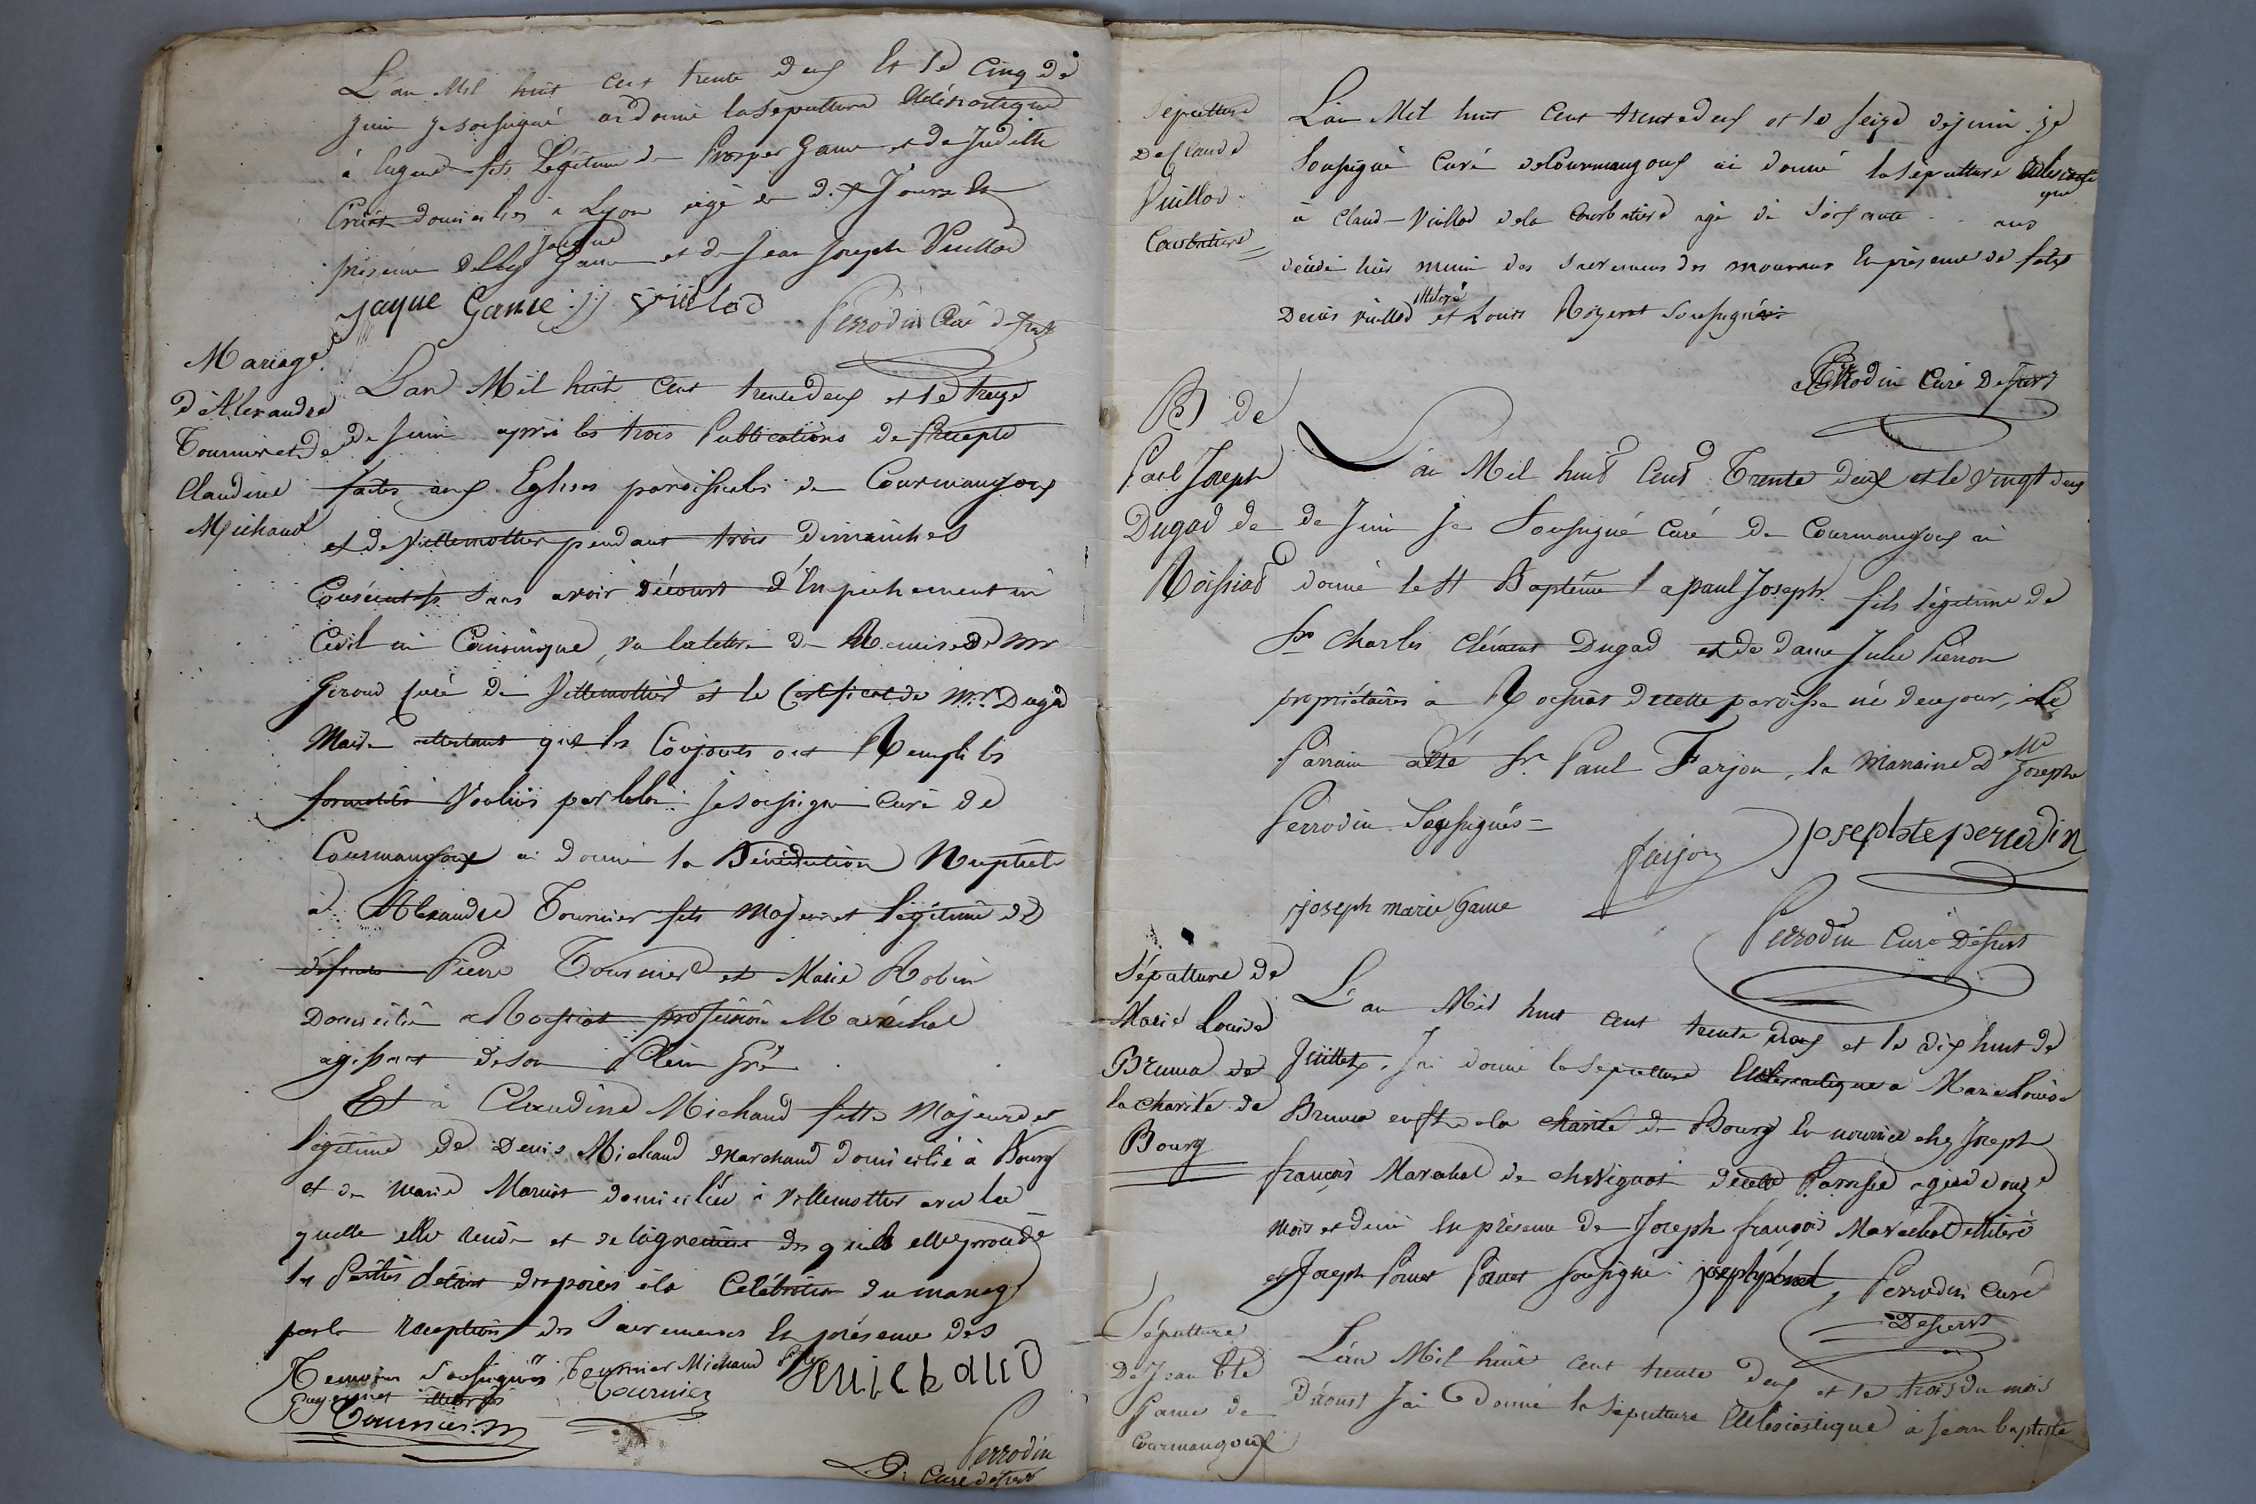 L'an Mil huit cent trente deux Et le Cinq de
Juin je soussigné ai donné la Sépulture Ecclésiastique
à Eugene fils Légitime de Prosper Game et de Judith
domiciliés à Lyon agé de dix Jours En
présence de Jacque Game et de Jean Joseph Vuillod
jaque Game jj vuilod
Perrodin Curé desst
Mariage
d'Alexandre
Tournier et de
Claudine
Michaud
L'an Mil huit cent trente deux et le treize
de Juin après les trois Publications de Précepte
faites aux Eglises paroissiales de Courmangoux
et de Villemottier pendant trois Dimanches
Consécutifs sans avoir découvert d'Empêchement ni
Civil ni Canonique, vu la lettre de Remise de Mr
Giroud Curé de Villemottier et le Certificat de Mr. Dugad
Maire attestant que les Conjoints ont Rempli les
formalités Voulues par la loi. Je soussigné Curé de
Courmangoux ai donné la Bénédiction Nuptiale
à Alexandre Tournier fils Majeur et légitime de
défunts Pierre Tournier et Marie Robin
Domicilié a Roissiat profession Maréchal
agissant de son Plein Gré
Et à Claudine Michaud fille Majeure et
légitime de Denis Michaud Marchand domicilié à Bourg
et de Marie domiciliée à Villemottier avec la
quelle elle réside et de l'agrément des quels elle procède
les Parties s'étant disposées à la Célébration du mariage
par la réception des Sacrements En présence des
Temoins Soussignés Tournier Michaud
illiterés
Tournier
michaud
Tournier
Perrodin
Curé desst
Sépulture
De Claude
Vuillod
Courbatiere
L'an Mil huit Cent trente deux et le seize de juin je
Soussigné Curé de Courmangoux ai donné la sépulture Ecclésiasti
que
à Claude Vuillod de la Courbatiere agé de soixante ans
décédé hier muni des Sacrements des mourants En présence de
Denis Vuillod illiteré et Louis Royerat Soussignés
Perrodin Curé Desst
B de
Paul Joseph
Dugad de
Roissiat
L'an Mil huit Cent Trente Deux et le Vingt deux
de Juin Je Soussigné Curé de Courmangoux ai
donné le St Baptême a paul Joseph fils légitime de
Sr Charles Clément Dugad et de dame Julie Pierron
propriétaires à Rossiat de cette paroisse né de ce jour, Le
Parrain a été Sr Paul Farjon, la Marraine Delle Josephe
Perrodin Soussignés
farjon
josephte perrodin
joseph marie Game
Perrodin Curé Desst
Sépulture de
Marie Louise
Bruma de
la Charité de
Bourg
L'an Mil huit cent trente deux et le dix huit de
Juillet, J'ai donné la Sépulture Ecclesiastique a Marie Louise
Bruma enft de la Charité de Bourg En nourrice chez Joseph
françois Marechal de Chevignat de cette Paroisse agée d'onze
Mois et demi En présence de Joseph françois Marechal illiteré
et Joseph Ponet Ponet Soussigné joseph ponet Perrodin Curé
Desst
Sépulture
De Jean Bte
Game de
Courmangoux
L'an Mil huit cent trente deux et le trois du mois
D'aout J'ai donné la Sépulture Ecclésiastique à Jean baptiste